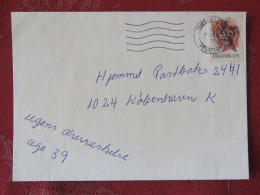 Hjemmet Postboks 2441
1024 København K
ugens
uge 39